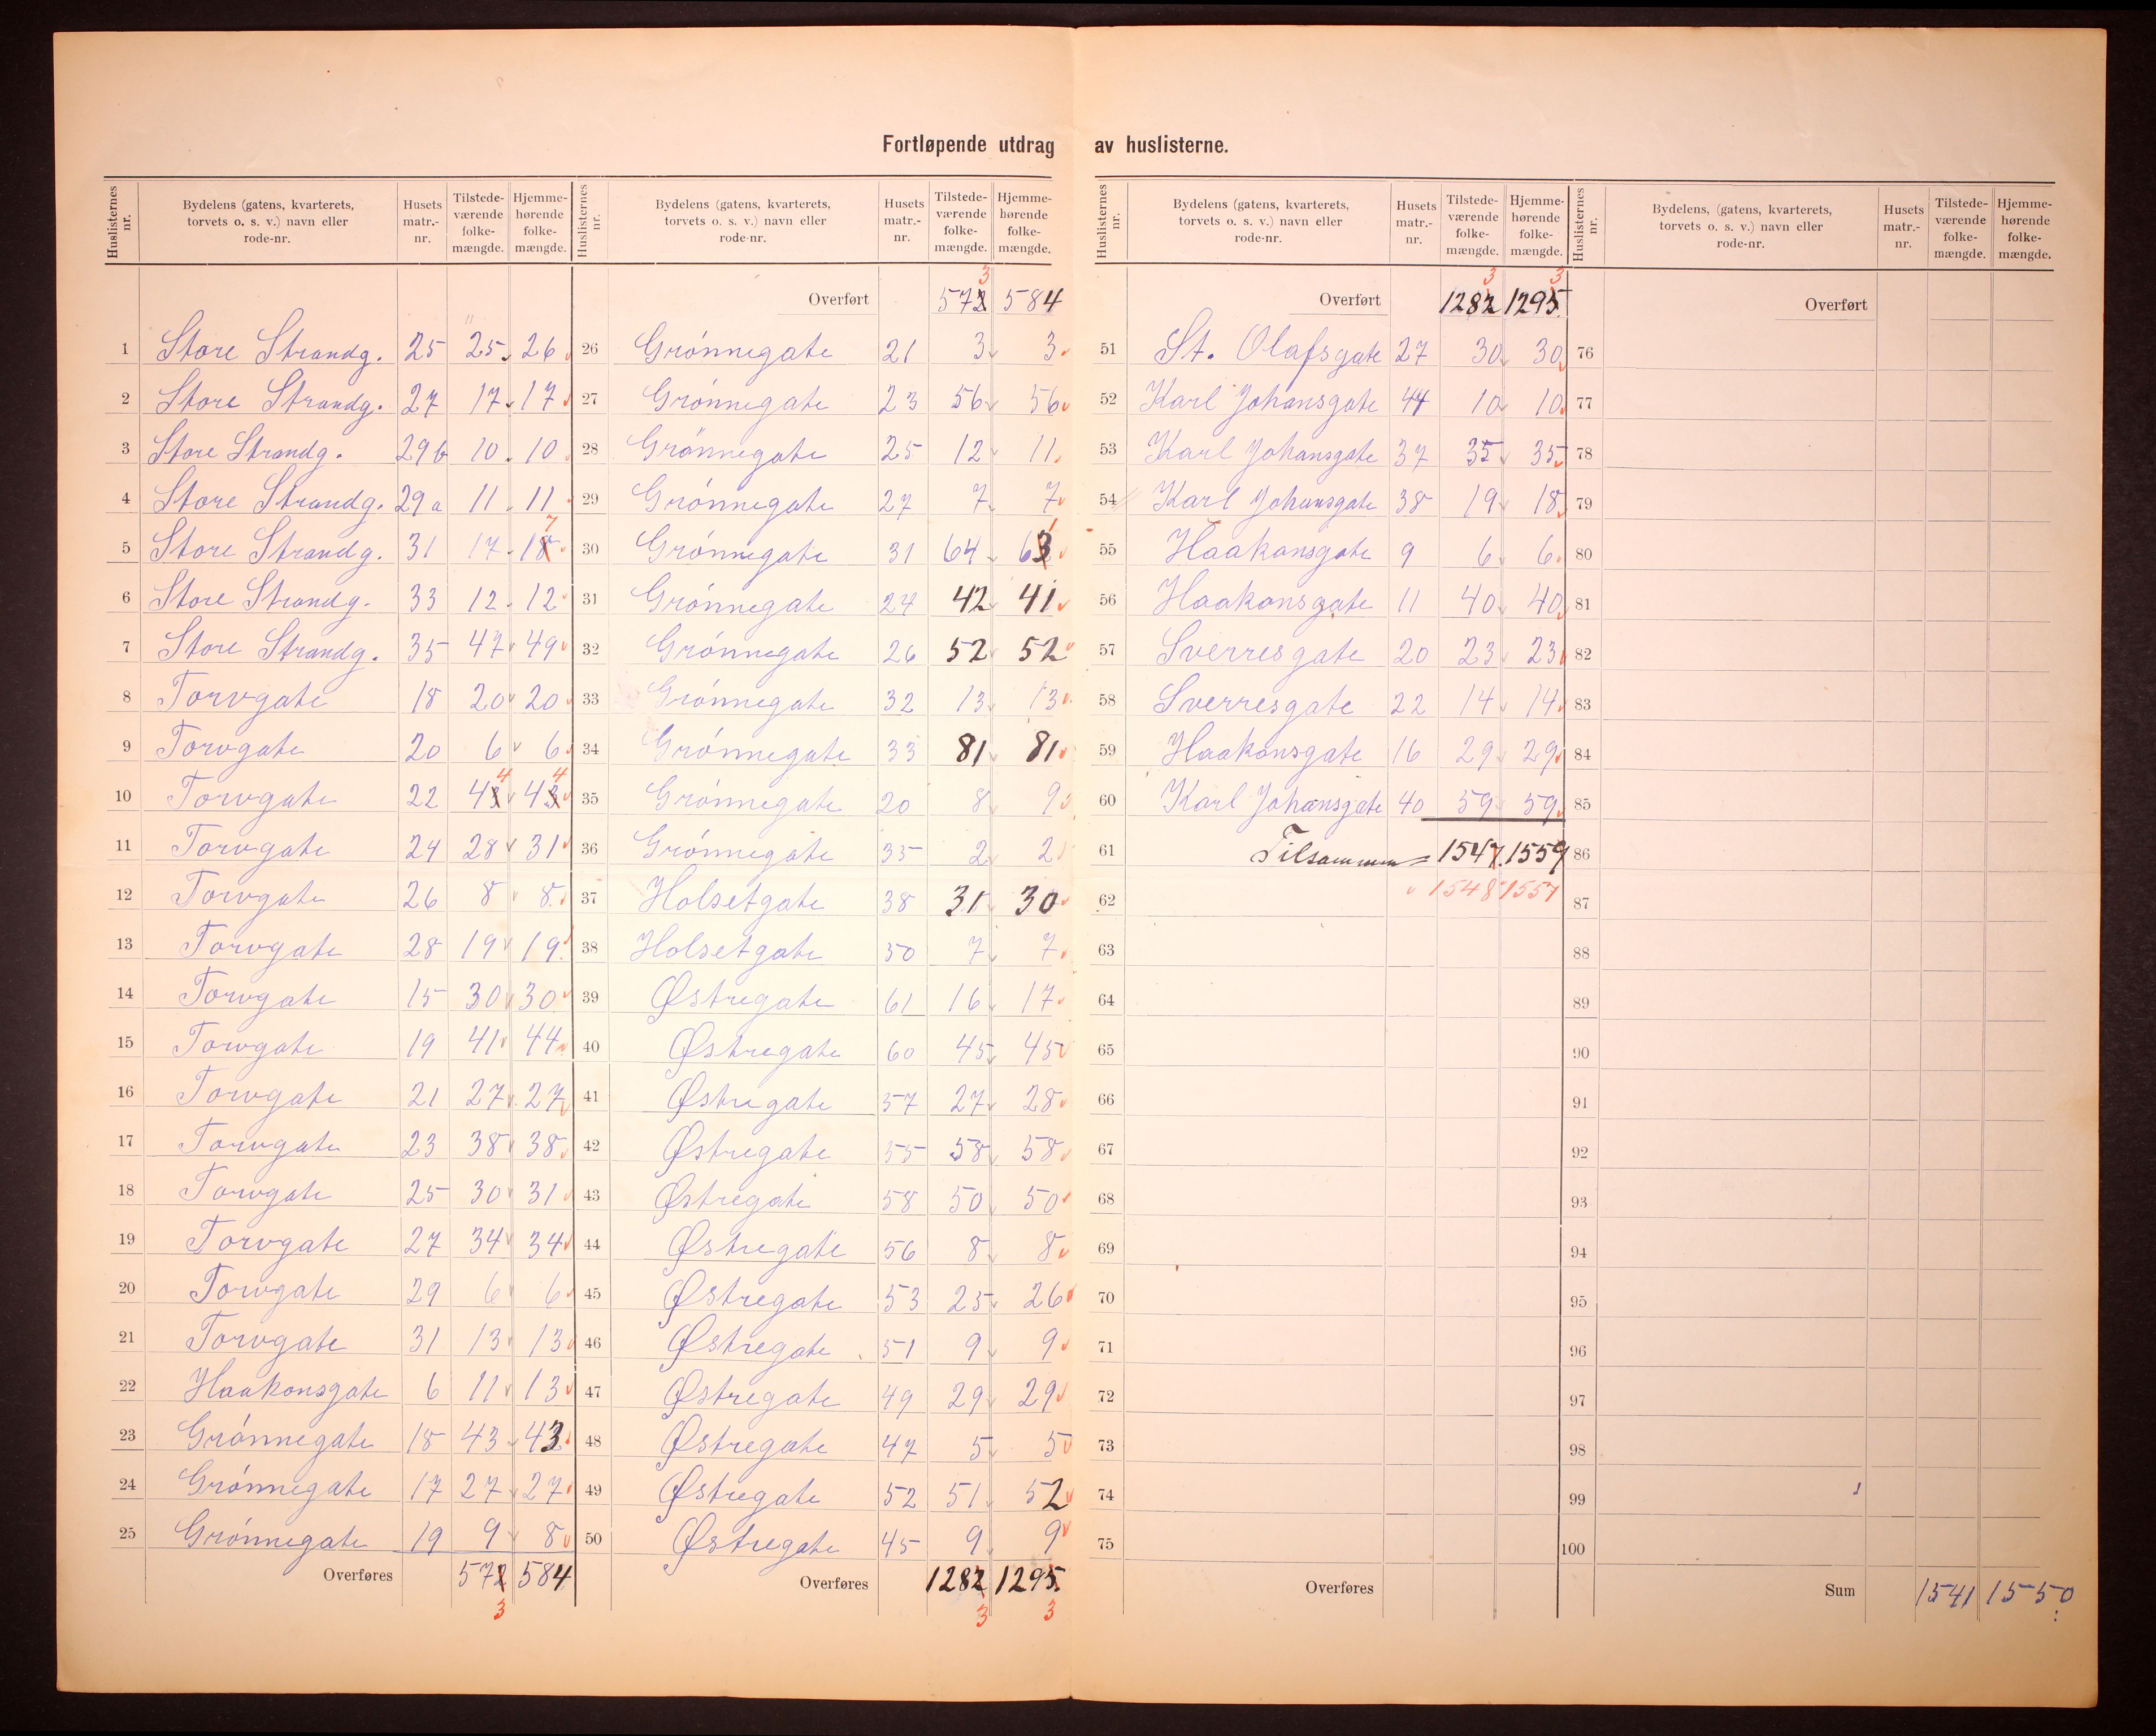 Fortløpende utdrag av huslisterne.
Huslisternes nr. | Bydelens (gatens, kvarterets, torvets o. s. v.) navn eller rode-nr. | Husets matr.-nr. | Tilstede-værende folke-mængde. | Hjemme-hørende folke-mængde.
1 Store Strandg. 25 25 26
2 Store Strandg. 27 17 17
3 Store Strandg. 29b 10 10
4 Store Strandg. 29a 11 11
5 Store Strandg. 31 17 18 7
6 Store Strandg. 33 12 12
7 Store Strandg. 35 47 49
8 Torvgate 18 20 20
9 Torvgate 20 6 6
10 Torvgate 22 43 4 43 4
11 Torvgate 24 28 31
12 Torvgate 26 8 8
13 Torvgate 28 19 19
14 Torvgate 15 30 30
15 Torvgate 19 41 44
16 Torvgate 21 27 27
17 Torvgate 23 38 38
18 Torvgate 25 30 31
19 Torvgate 27 34 34
20 Torvgate 29 6 6
21 Torvgate 31 13 13
22 Haakonsgate 6 11 13
23 Grønnegate 18 43 43
24 Grønnegate 17 27 27
25 Grønnegate 19 9 8
Overføres 572 584
3
Huslisternes nr. | Bydelens (gatens, kvarterets, torvets o. s. v.) navn eller rode-nr. | Husets matr.-nr. | Tilstede-værende folke-mængde. | Hjemme-hørende folke-mængde.
3
Overført 572 584
26 Grønnegate 21 3 3
27 Grønnegate 23 56 56
28 Grønnegate 25 12 11
29 Grønnegate 27 7 7
30 Grønnegate 31 64 63 1
31 Grønnegate 24 42 41
32 Grønnegate 26 52 52
33 Grønnegate 32 13 13
34 Grønnegate 33 81 81
35 Grønnegate 20 8 9
36 Grønnegate 35 2 2
37 Holsetgate 38 31 30
38 Holsetgate 50 7 7
39 Østregate 61 16 17
40 Østregate 60 45 45
41 Østregate 57 27 28
42 Østregate 55 58 58
43 Østregate 58 50 50
44 Østregate 56 8 8
45 Østregate 53 25 26
46 Østregate 51 9 9
47 Østregate 49 29 29
48 Østregate 47 5 5
49 Østregate 52 51 52
50 Østregate 45 9 9
Overføres 1282 1295
3 3
Huslisternes nr. | Bydelens (gatens, kvarterets, torvets o. s. v.) navn eller rode-nr. | Husets matr.-nr. | Tilstede-værende folke-mængde. | Hjemme-hørende folke-mængde.
3 3
Overført 1282 1295
51 St. Olafsgate 27 30 30
52 Karl Johansgate 44 10 10
53 Karl Johansgate 37 35 35
54 Karl Johansgate 38 19 18
55 Haakonsgate 9 6 6
56 Haakonsgate 11 40 40
57 Sverresgate 20 23 23
58 Sverresgate 22 14 14
59 Haakonsgate 16 29 29
60 Karl Johansgate 40 59 59
61 Tilsammen = 1547 1559
62 1548 1557
63
64
65
66
67
68
69
70
71
72
73
74
75
Overføres
Huslisternes nr. | Bydelens, (gatens, kvarterets, torvets o. s. v.) navn eller rode-nr. | Husets matr.-nr. | Tilstede-værende folke-mængde. | Hjemme-hørende folke-mængde.
Overført
76
77
78
79
80
81
82
83
84
85
86
87
88
89
90
91
92
93
94
95
96
97
98
99
100
Sum 1541 1550